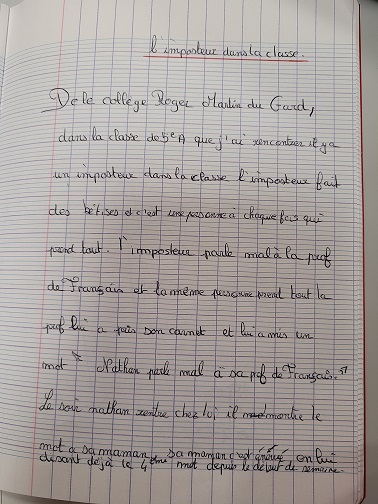 l'imposteur dans la classe.
De le collège Roger Martin du Gard,
dans la classe de 5e A que j'ai rencontrer il y a
un imposteur dans la classe l'imposteur fait
des bêtises et c'est une personne à chaque fois qui
prend tout. l'imposteur parle mal à la prof
de Français et la même personne prend tout la
prof lui a pris son carnet et lui a mis un
mot " Nathan parle mal à sa prof de Français. "
Le soir nathan rentre chez lui il montre le
mot a sa maman, sa maman c'est énervé en lui
disant déjà le 4ème mot depuis le début de semaine.